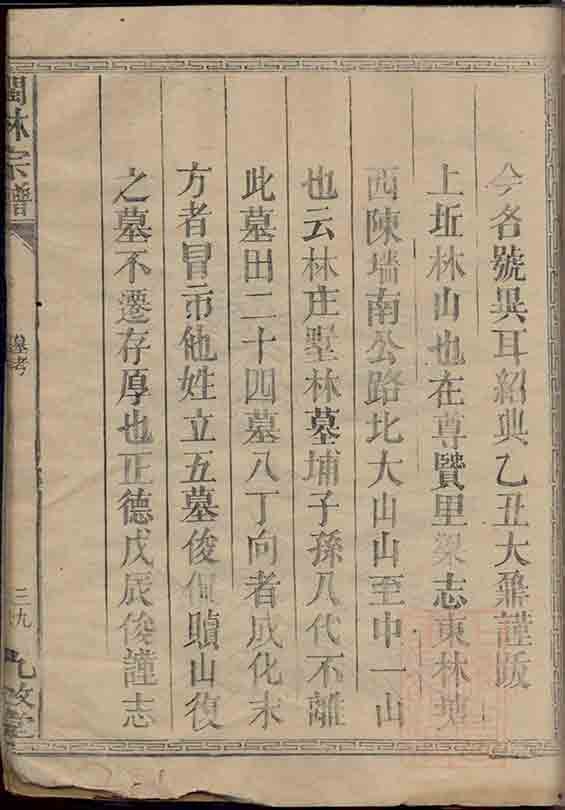 今各號異耳紹興乙丑大鼐謹跋
上坵林山也在尊賢里梁志東林墓
西陳墻南公路北大山山至中一山
也云林庄墅林墓埔子孫八代不離
此墓田二十四墓八丁向者成化末
方者冒市他姓立五墓俊侃贖山復
之墓不遷存厚也正德戊辰俊謹志
閩林宗譜
墓考
三九
九牧堂